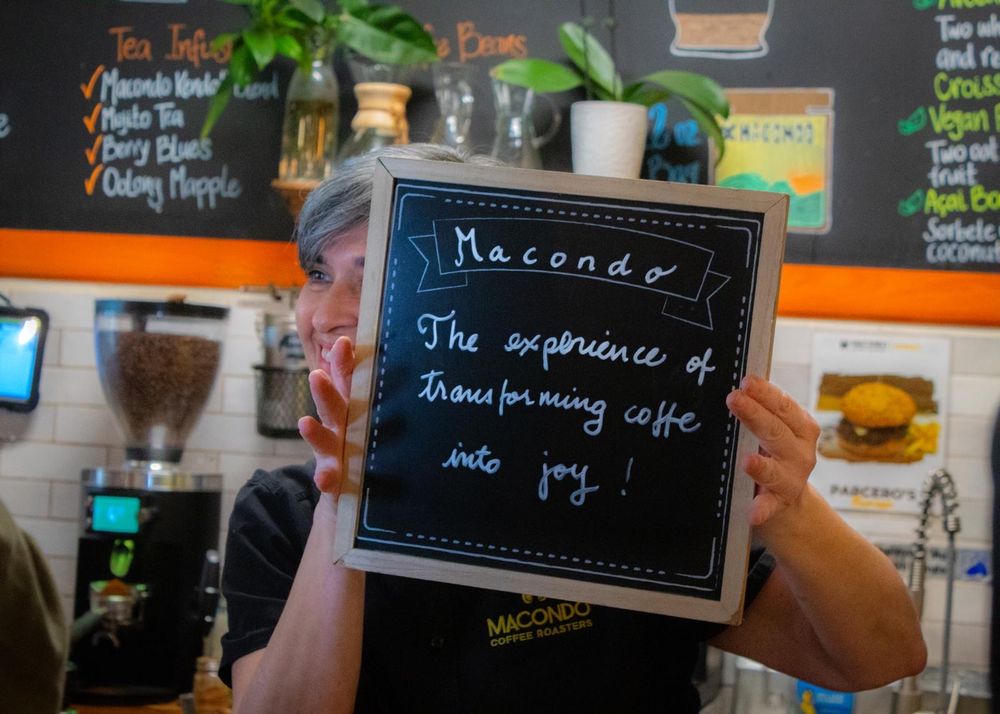 Tea Infus
Macondo Kendo Blend
Mojito Tea
Berry Blues
Oolong Mapple
Beans
MACONDO
Two
and
Croiss
Vegan
Two
fruit
Açai Bo
Sorbete
coconut
Macondo
The experience of
transforming coffe
into joy !
MACONDO
COFFEE ROASTERS
PARCERO'S